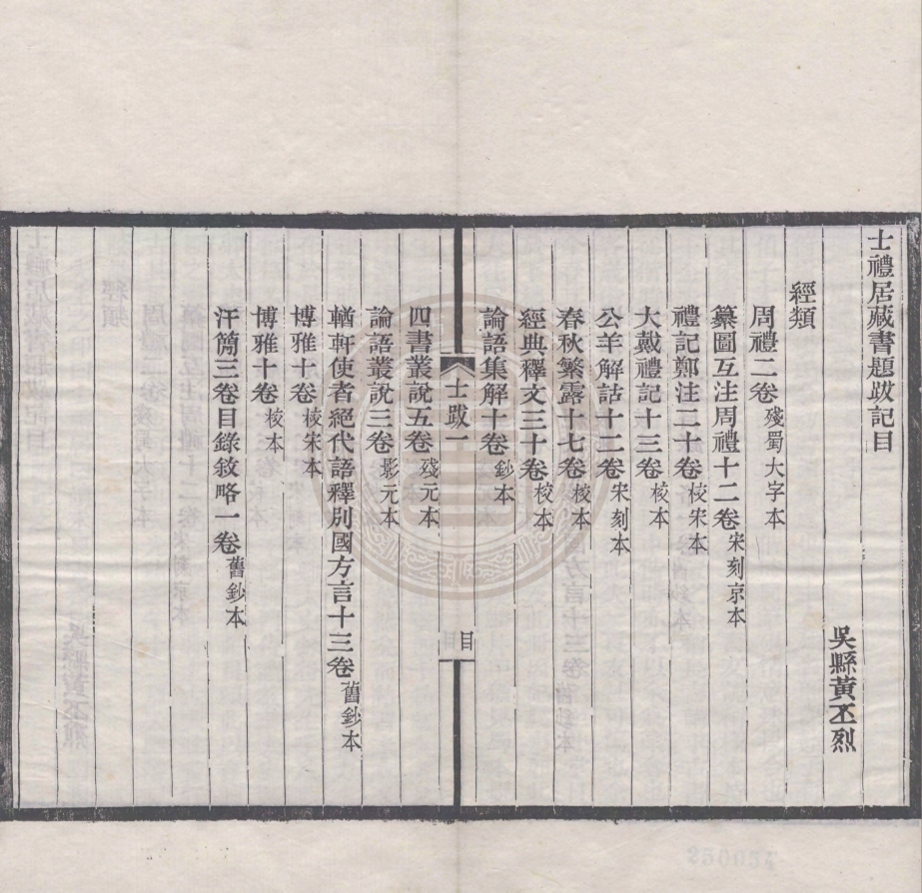 士禮居藏書題跋記目
吳縣黃丕烈
經類
周禮二卷殘蜀大字本
纂圖互注周禮十二卷宋刻京本
禮記鄭注二十卷校宋本
大戴禮記十三卷校本
公羊解詁十二卷宋刻本
春秋繁露十七卷校本
經典釋文三十卷校本
論語集解十卷鈔本
士跋一
目
四書叢說五卷殘元本
論語叢說三卷影元本
輶軒使者絕代語釋別國方言十三卷舊鈔本
博雅十卷校宋本
博雅十卷校本
汗簡三卷目錄敘略一卷舊鈔本